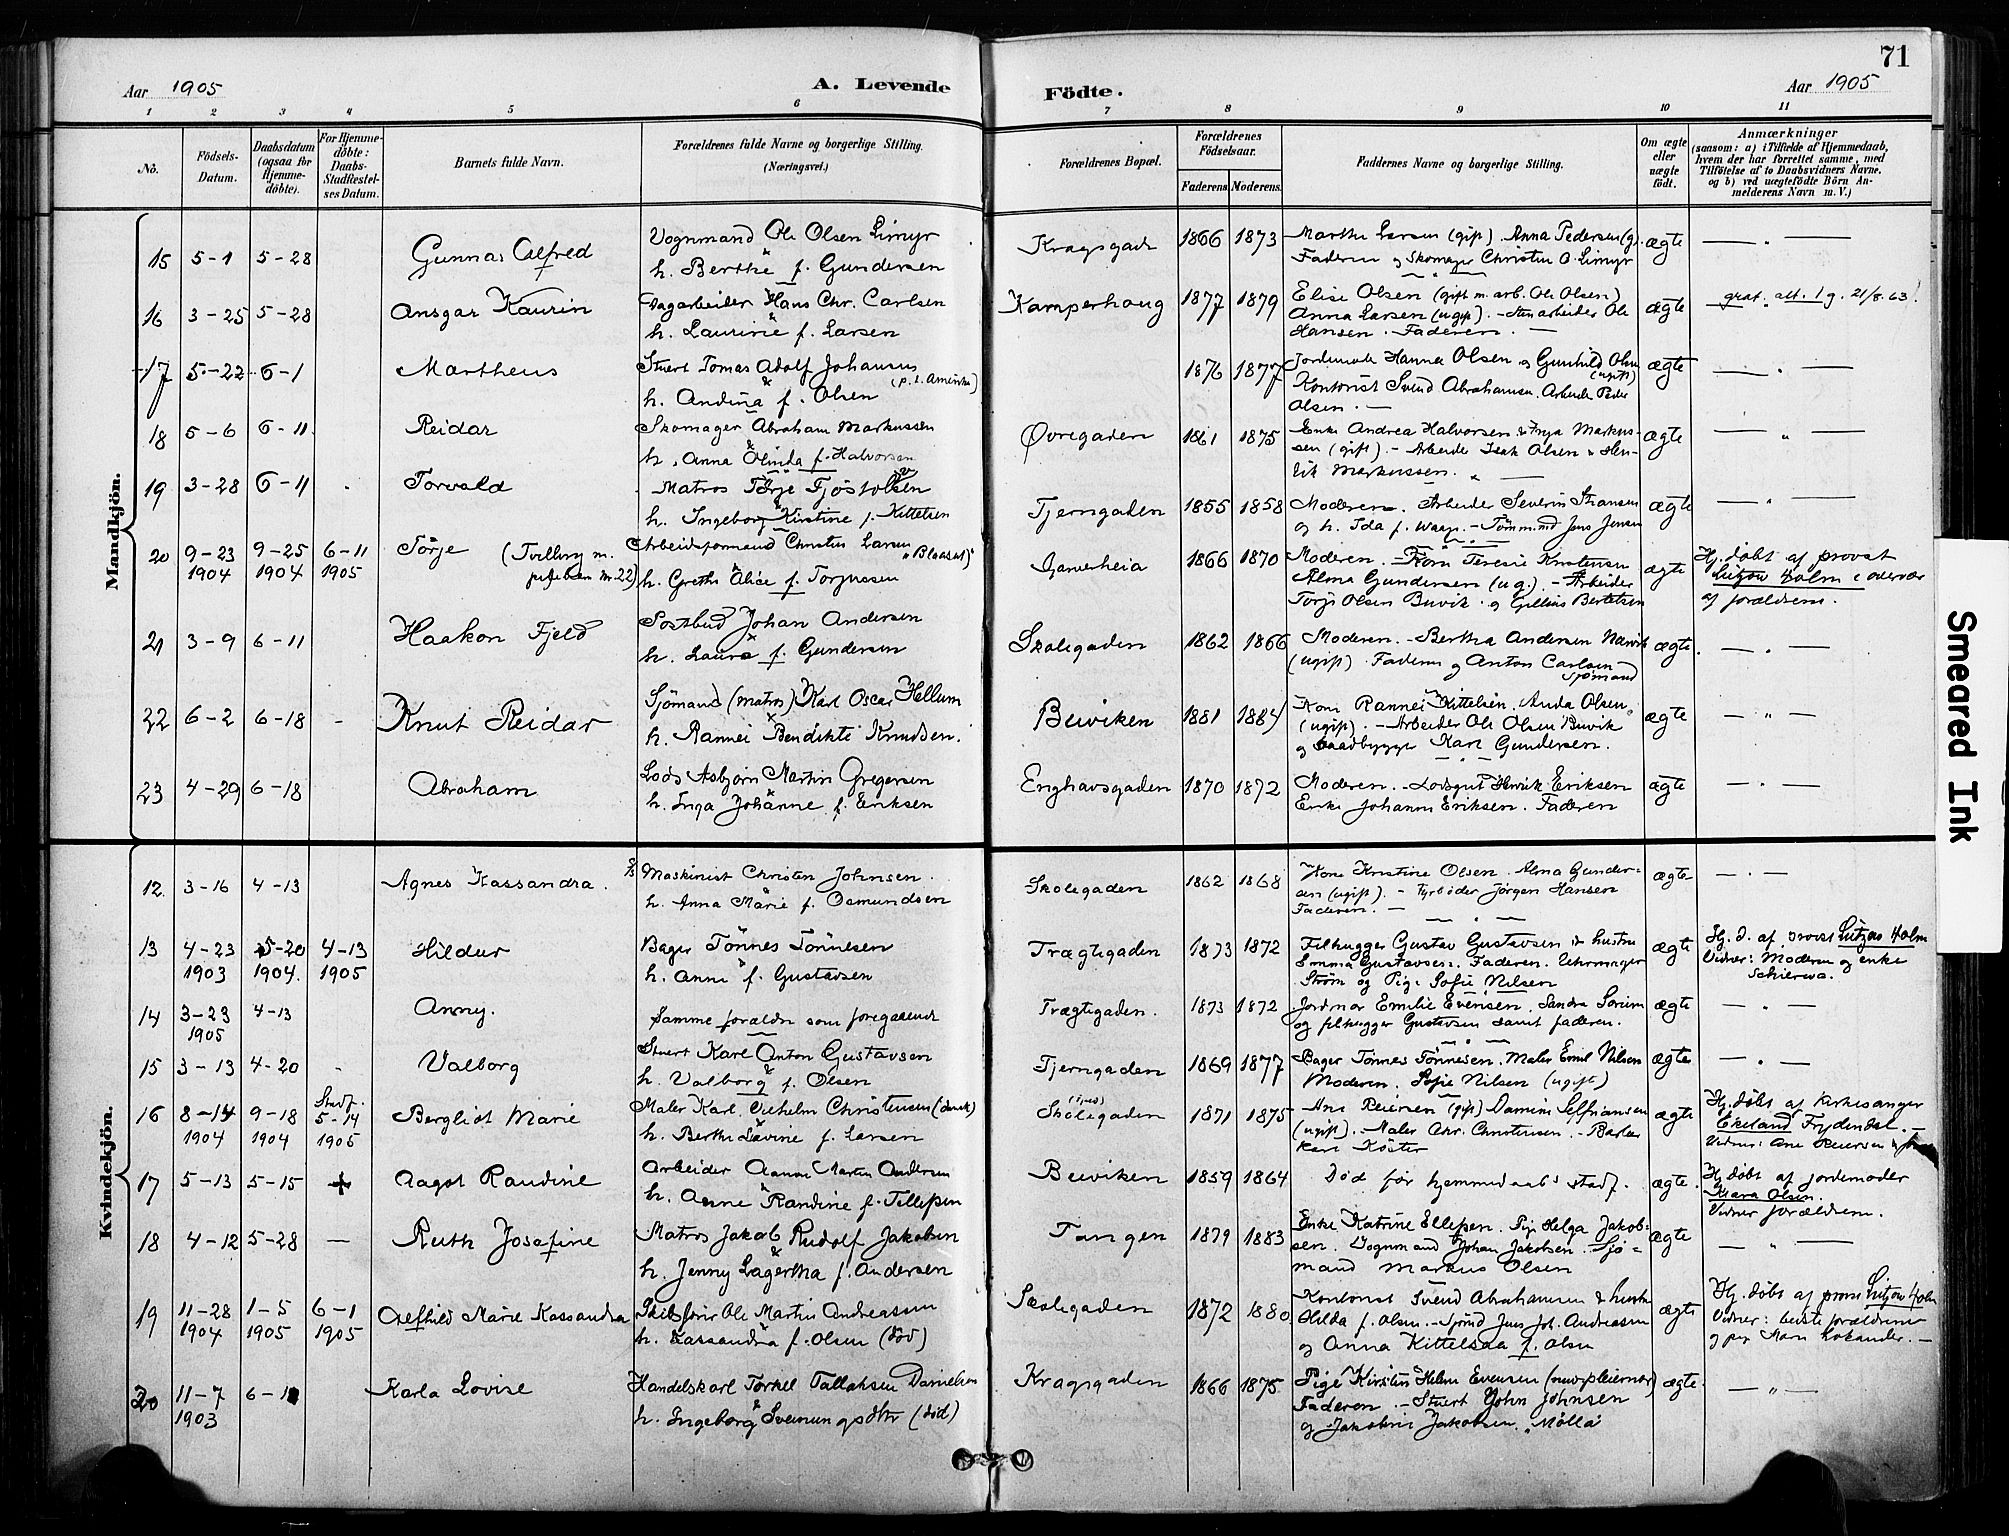 71
Aar 1905
A. Levende
Födte.
Aar 1905
1 2 3 4 5 6 7 8 9 10 11
No.
Födsels-Datum.
Daabsdatum (ogsaa for Hjemme-döbte).
For Hjemme-döbte: Daabs-Stadfestel-ses Datum.
Barnets fulde Navn.
Forældrenes fulde Navne og borgerlige Stilling.
(Næringsvei.)
Forældrenes Bopæl.
Forældrenes Födselsaar.
Faderens Moderens.
Faddernes Navne og borgerlige Stilling.
Om ægte eller uægte födt.
Anmærkninger
(saasom: a) i Tilfælde af Hjemmedaab,
hvem der har forrettet samme, med
Tilföielse af to Daabsvidners Navne,
og b) ved uægtefödte Börn An-
melderens Navn m. V.)
Mandkjön.
15 5-1 5-28 Gunnar Alfred
Vognmand Ole Olsen Limyr
h. Berthe f. Gundersen
Kragsgad 1866 1873
Marthe Larsen (gift). Anna Pedersen (g).
Faderen og Skomager Christen O. Limyr
ægte
16 3-25 5-28 Ansgar Kaurin
Dagarbeider Hans Chr. Carlsen
h. Laurine f. Larsen
Kamperhaug 1877 1879
Elise Olsen (gift m. arb. Ole Olsen)
Anna Larsen (ugift). - Stenarbeider Ole
Hansen. Faderen.
ægte
grat. att. 21/8.63
17 5-22 6-1 Martheus
Stuert Tomas Adolf Johansen
(p. t. Amerika)
h. Andina f. Olsen
1876 1877
Jordemode Hanna Olsen og Gunhild Olsen
(ugift)
Kontorist Svend Abrahamsen. Arbeide Peder
Olsen.
ægte
18 5-6 6-11 Reidar
Skomager Abraham Markussen
h. Anna Olinda f. Halvorsen
Øvregaden 1861 1875
Enke Andrea Halvorsen & Markus-
sen (gift). - Arbeide Isak Olsen & Hen-
rik Markussen.
ægte
19 3-28 6-11 Torvald
Matros Terje Fjöstolsen
h. Ingeborg Kirstine f. Kittelsen
Tjerngaden 1855 1858
Moderen. Arbeider Severin Johansen
og h. Ida f. - Tömm.md Jens Jensen
ægte
20 9-23 1904 9-25 1904 6-11 1905 Törje (Tvilling m.
pigebarn nr 22)
Arbeidsformand Christen Larsen "Blaasut"
h. Grethe Alice f. Torjussen
Garverheia 1866 1870
Moderen. - Kone Teresie Knutsen
Alma Gundersen (ug.). - Arbeider
Torje Olsen Buvik og Gellius Bertelsen
ægte
Hj. döbt af provst
Lützow Holm i overvær
af forældrene.
21 3-9 6-11 Haakon Fjeld
Postbud Johan Andersen
h. Laura f. Gundersen
Skolegaden 1862 1866
Moderen. - Bertha Andersen Narvik
(ugift). Faderen og Anton Carlsen
Sjömand
ægte
22 6-2 6-18 Knut Reidar
Sjömand (matros) Karl Oscar Hellum
h. Rannei Bendikte Knudsen.
Buviken 1881 1884
Kone Rannei Kittelsen, Anda Olsen
(ugift). - Arbeider Ole Olsen Buvik
og baadbygger Karl Gundersen.
ægte
23 4-29 6-18 Abraham
Lods Asbjörn Martin Gregersen
h. Inga Johanne f. Eriksen
Enghavsgaden 1870 1872
Moderen. - Lodsgut Henrik Eriksen
Enke Johanne Eriksen. Faderen
ægte
Kvindekjön.
12 3-16 4-13 Agnes Kassandra.
Maskinist Christen Johnsen.
h. Anna Marie f. Osmundsen
Skolegaden 1862 1868
Kone Kristine Olsen. Alma Gunder-
sen (ugift). - Fyrböder Jörgen Hansen
Faderen.
ægte
13 4-23 1903 5-20 1904. 4-13 1905 Hildur
Bager Tönnes Tönnesen
h. Anne f. Gustavsen
Trægtegaden 1873 1872
Filhugger Gustav Gustavsen & hustru
Emma Gustavsen. Faderen. Uhrmager
Ström og Pige Sofie Nilsen
ægte
Hj. d. af provst Lützow Holm
Vidner: Moderen og enke
14 3-23 1905 4-13 Anny.
Samme forældre som foregaaende
Trægtegaden. 1873 1872
Jordmor Emilie Evensen. Sandra
og filhugger Gustavsen samt faderen.
ægte
15 3-13 4-20 Valborg
Stuert Karl Anton Gustavsen
h. Valborg f. Olsen
Tjerngaden 1869 1877
Bager Tönnes Tönnesen. Maler Emil Nilsen
Moderen. Sofie Nilsen (ugift)
ægte
16 8-14 1904 9-18 1904 Stadf. 5-14 1905 Bergliot Marie
Maler Karl Vilhelm Christensen (dansk)
h. Berthe Lavine f. Larsen
Skolegaden 1871 1875
Ane Reiersen (gift)
(ugift). Maler Chr. Christensen. - Barber
Karl Köster
ægte
Hj. döbt af kirkesanger
Ekeland Frydendal. -
Vidner: Ane Reiersen &
17 5-13 5-15 + Aagot Randine
Arbeider Aanon Martin Andersen
h. Anne Randine f. Tellefsen
Buviken 1859 1864
Död för hjemmedaabs stadf.
ægte.
Hj. döbt af jordemoder
Klara Olsen.
Vidner forældrene.
18 4-12 5-28 Ruth Josefine
Matros Jakob Rudolf Jakobsen
h. Jenny Lagertha f. Andersen
Tangen 1879 1883
Enke Katrine Ellefsen. Pige Helga Jakob-
sen. Vognmand Johan Jakobsen. Sjö-
mand Markus Olsen
ægte
19 11-28 1904 1-5 1905 6-1 1905 Alfhild Marie Kassandra
Skibsförer Ole Martin Andreassen
h. Kassandra f. Olsen (död)
Skolegaden 1872 1880
Kontorist Svend Abrahamsen & hustru
Hilda f. Olsen. - Sjömd Jens Joh. Andreassen
og Anna Kittelsaa f. Olsen
ægte
Hj. döbt af provst Lützow Holm
Vidner: bedsteforældrene
20 11-7 1903 6-1 Karla Lovise
Handelskarl Torkel Tallaksen Danielsen
h. Ingeborg Sveinungsdtr (död)
Kragsgaden 1866 1875
Pige Kirsten Helene Evensen
Faderen. - Stuert John Johnsen
og Jakobine Jakobsen. "Mölla"
ægte
Smeared Ink